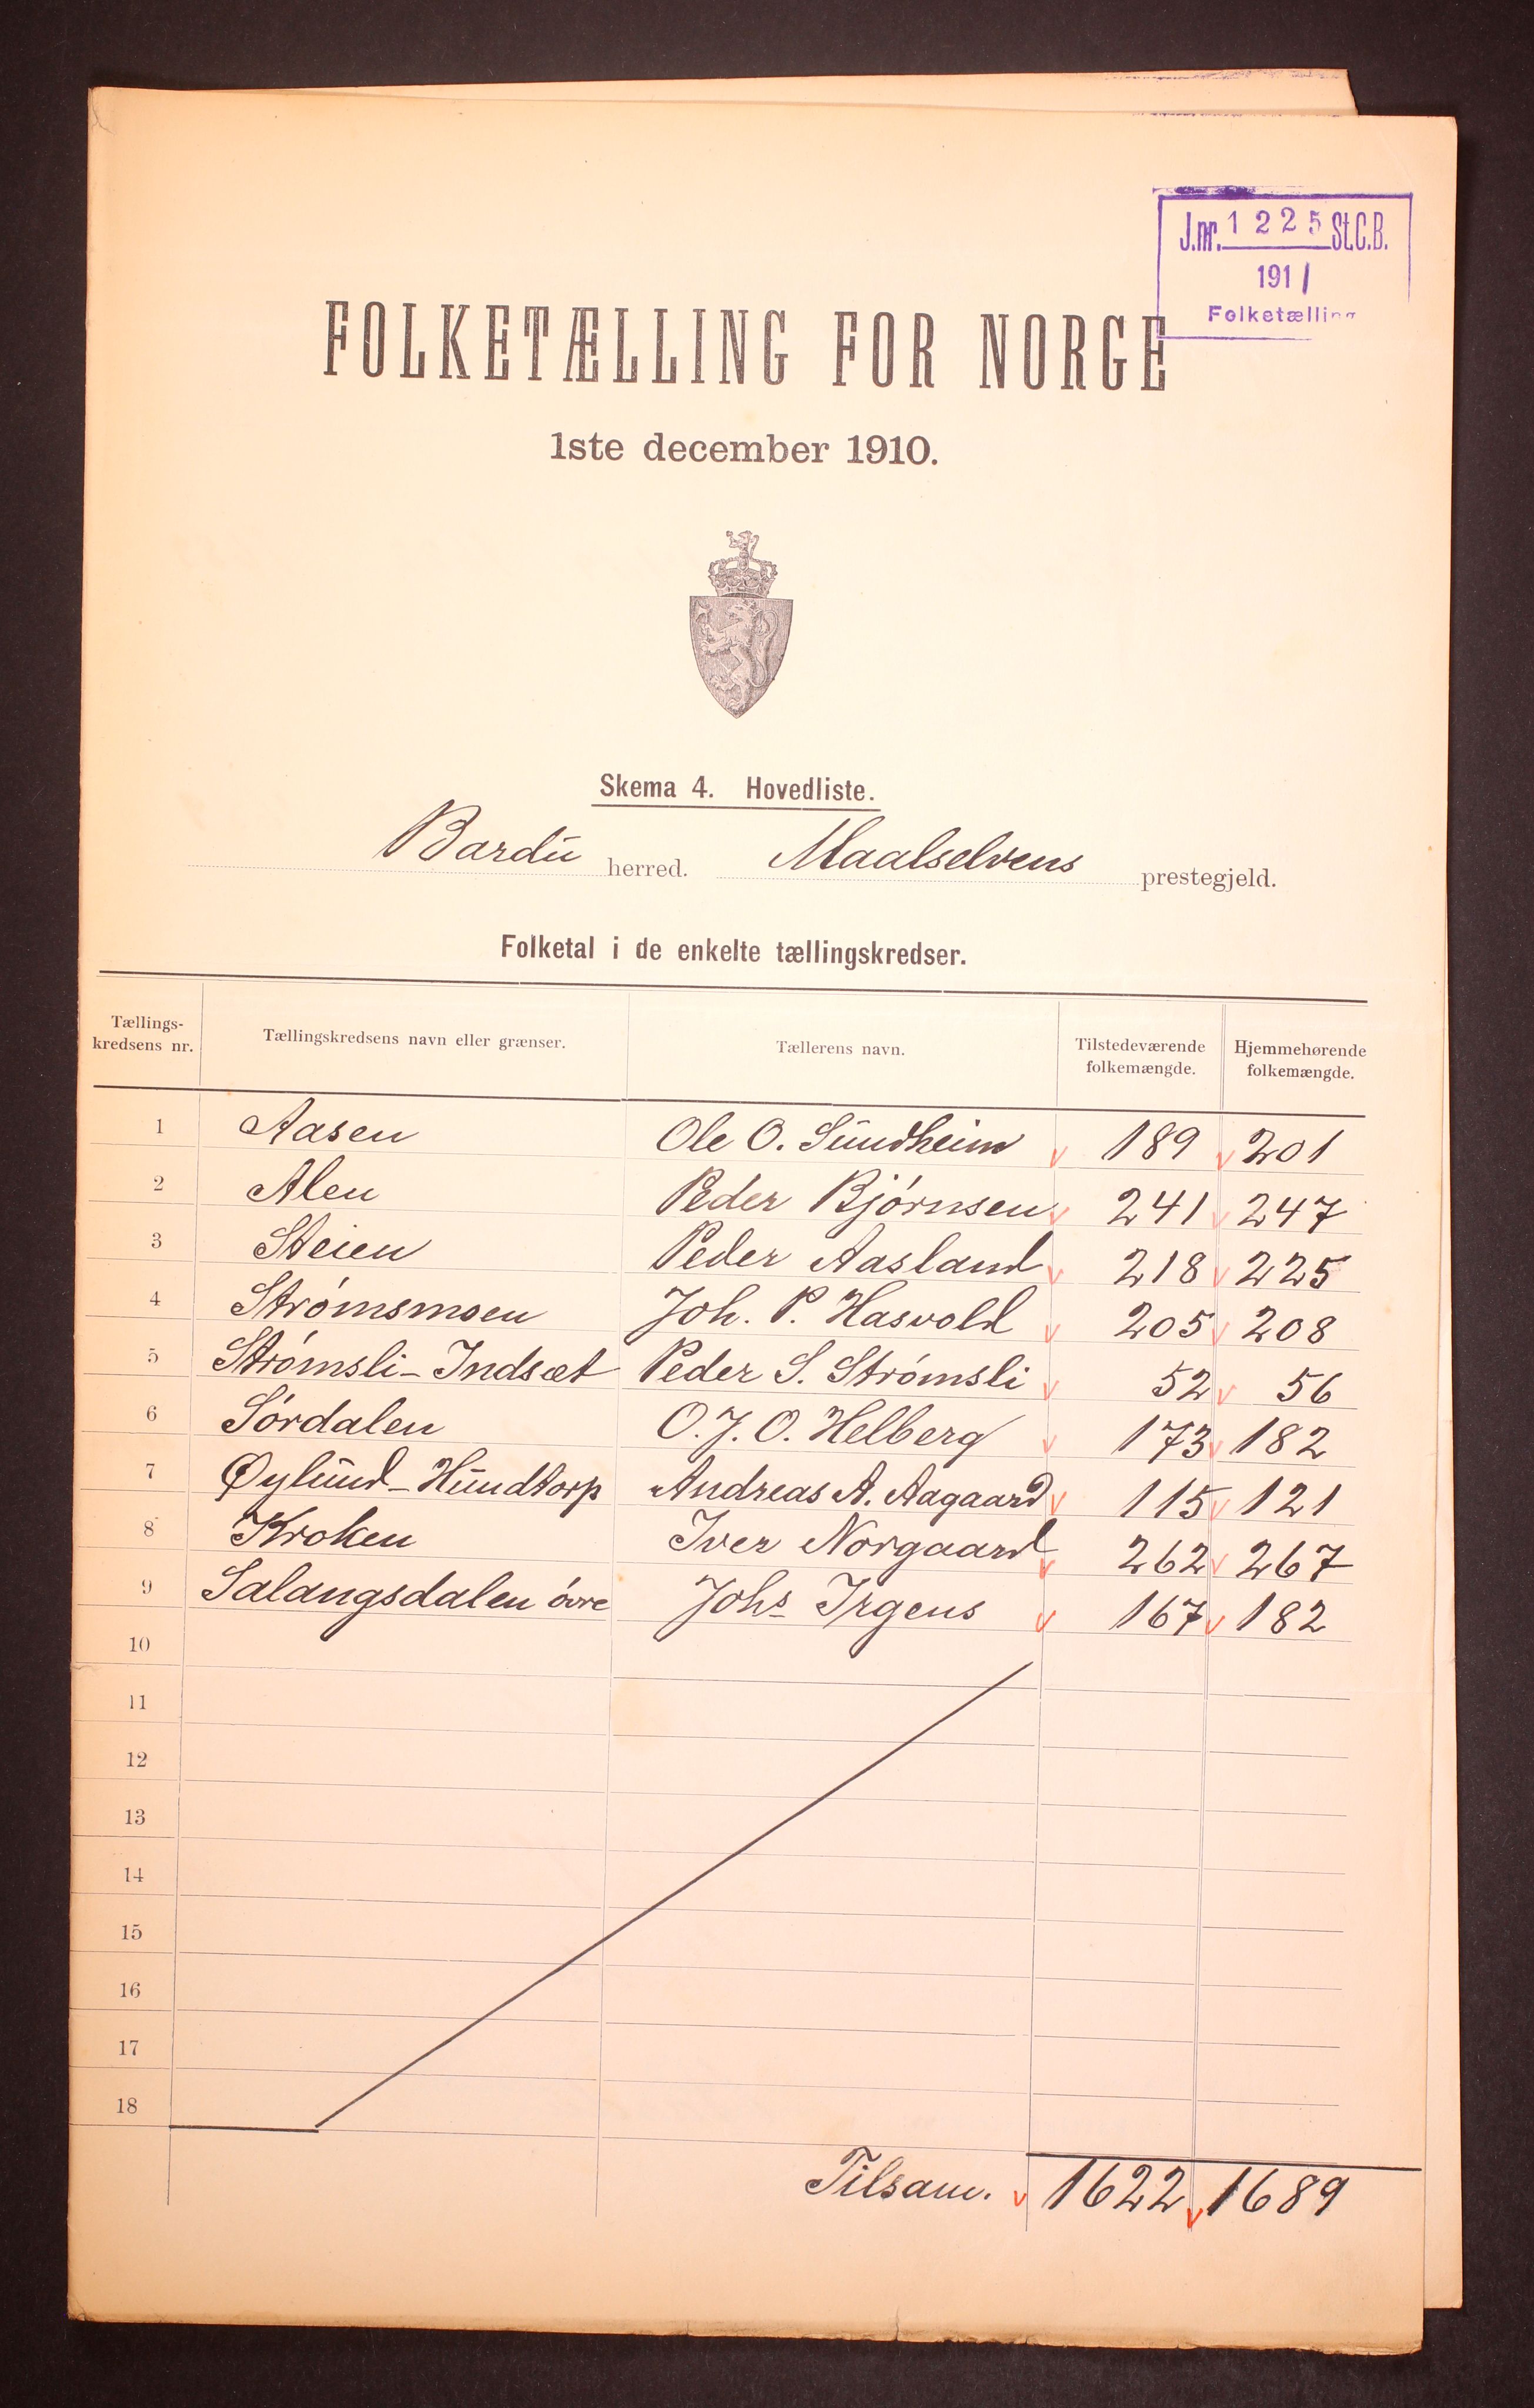 J.nr. 1225 St.C.B.
1911
Folketælling
FOLKETÆLLING FOR NORGE
1ste december 1910.
Skema 4. Hovedliste.
Bardu herred. Maalselvens prestegjeld.
Folketal i de enkelte tællingskredser.
Tællings-kredsens nr. Tællingskredsens navn eller grænser. Tællerens navn. Tilstedeværende folkemængde. Hjemmehørende folkemængde.
1 Aasen Ole O. Sundheim 189 201
2 Alen Peder Bjørnsen 241 247
3 Steien Peder Aasland 218 225
4 Strømsmoen Joh. P. Hasvold 205 208
5 Strømsli-Indsæt Peder S. Strømsli 52 56
6 Sørdalen O. J. O. Helberg 173 182
7 Øylund-Hundtorp Andreas A. Aagaard 115 121
8 Kroken Iver Norgaard 262 267
9 Salangsdalen øvre Johs Irgens 167 182
10
11
12
13
14
15
16
17
18
Tilsam. 1622 1689